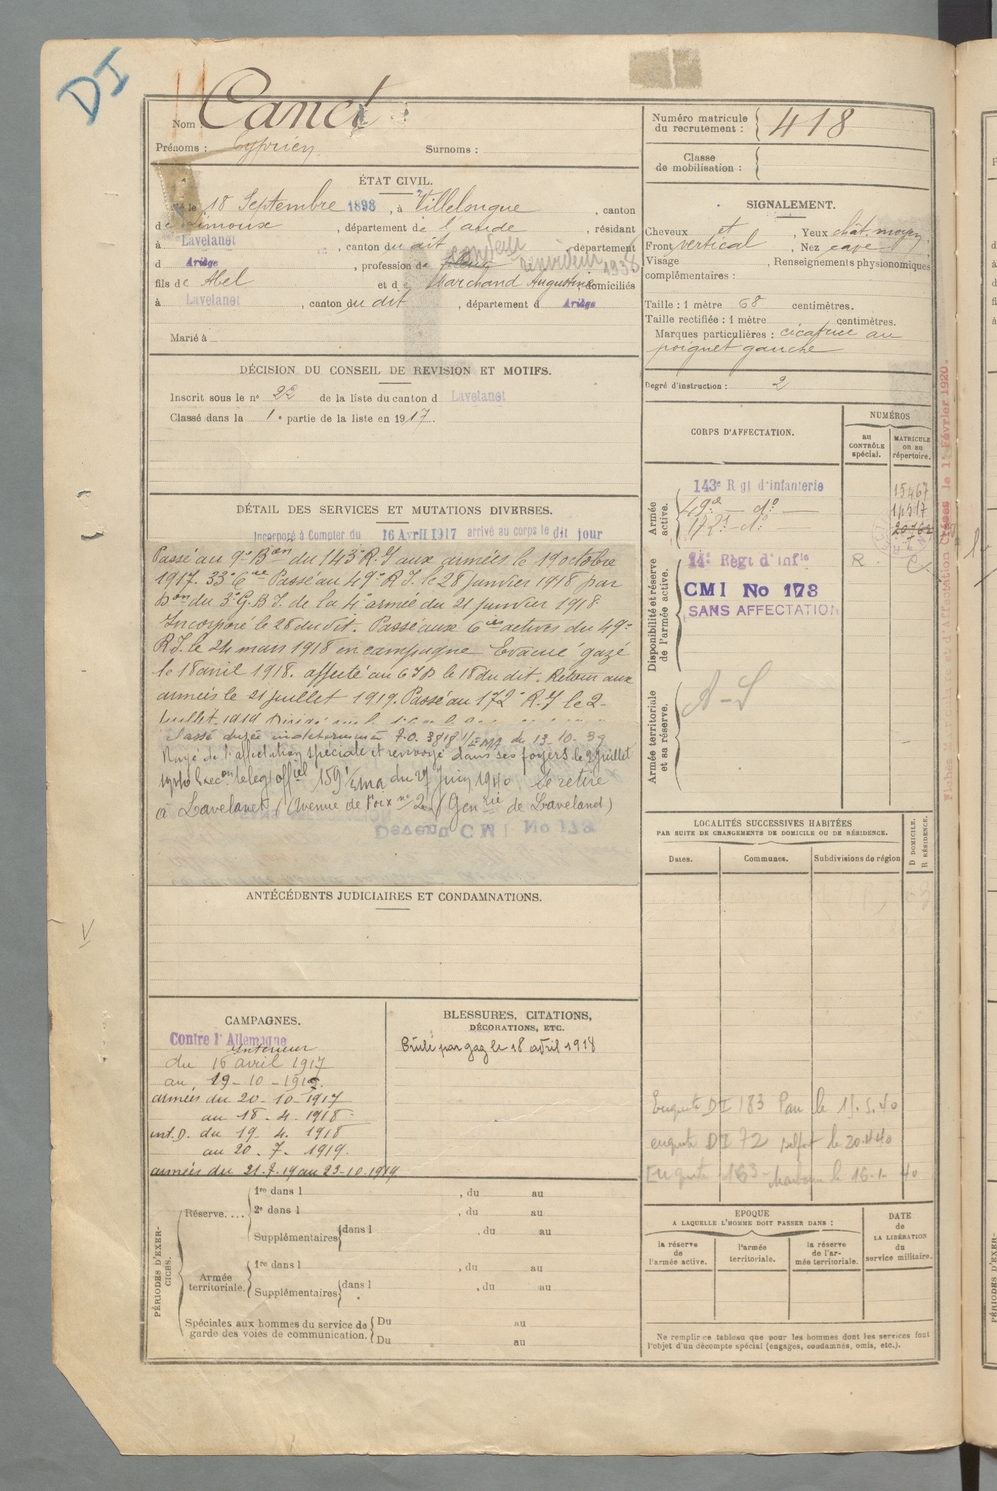 DI
Nom Canet
Prénoms : Cyprien Surnoms :
Numéro matricule du recrutement : 418
Classe de mobilisation :
ÉTAT CIVIL.
Né le 18 Septembre 1898, à Villelongue, canton
de Limoux, département de l'aude, résidant
à Lavelanet, canton du dit, département
d Ariège, profession de
fils de Abel et de Marchand Augustine domiciliés
à Lavelanet, canton du dit, département d Ariège
Marié à
SIGNALEMENT.
Cheveux et, Yeux chât. moyen
Front vertical, Nez cave
Visage, Renseignements physionomiques
complémentaires :
Taille : 1 mètre 68 centimètres.
Taille rectifiée : 1 mètre centimètres.
Marques particulières : cicatrice au
poignet gauche
Degré d'instruction : 2
DÉCISION DU CONSEIL DE REVISION ET MOTIFS.
Inscrit sous le n° 22 de la liste du canton d Lavelanet
Classé dans la 1e partie de la liste en 1917.
DÉTAIL DES SERVICES ET MUTATIONS DIVERSES.
Incorporé à Compter du 16 Avril 1917 arrivé au corps le dit jour
Passé au 9e Bon du 143e R.I aux armées le 19 octobre
1917. 33e Cie Passé au 49e R.I. le 28 janvier 1918 par
Bon du 3e G.B.I. de la 4e armée du 21 janvier 1918.
Incorporé le 28 du dit. Passé aux Cies actives du 49e
R.I. le 24 mars 1918 en campagne Evacué gazé
le 18 avril 1918. affecté au le 18 du dit. Retour aux
armées le 21 juillet 1919. Passé au 172e R.I le 2
juillet 1919
Passé durée indéterminée du 13.10.39
Rayé de l'affectation spéciale et renvoyé dans ses foyers le 9 juillet
1940 télég offiel 159 1/EMA du 27 Juin 1940. Se retire
à Lavelanet (Avenue de Foix no 2) (Gen rie de Lavelanet)
Devenu CMI No 173
CORPS D'AFFECTATION.
NUMÉROS
au CONTRÔLE spécial.
MATRICULE ou au répertoire.
Armée active.
143e Rgt d'Infanterie 15467
49e do
172e do
Disponibilité et réserve de l'armée active.
14e Régt d'Infie R.
CMI No 173
SANS AFFECTATION
Armée territoriale et sa réserve.
A-S
LOCALITÉS SUCCESSIVES HABITÉES
PAR SUITE DE CHANGEMENTS DE DOMICILE OU DE RÉSIDENCE.
Dates. Communes. Subdivisions de région
D DOMICILE.
R RÉSIDENCE.
ANTÉCÉDENTS JUDICIAIRES ET CONDAMNATIONS.
CAMPAGNES.
Contre l'Allemagne
Intérieur
du 16 avril 1917
au 19-10-1917
armées du 20-10-1917
au 18.4.1918
int. D. du 19.4.1918
au 20.7.1919.
armées du 21.7.19 au 23.10.1919
BLESSURES, CITATIONS,
DÉCORATIONS, ETC.
Brûlé par gaz le 18 avril 1918
Enquete DI 183 Pau le
enquete DI 72 Belfort le
Enquete 163 le 16.1.40
PÉRIODES D'EXERCICES.
Réserve....
1re dans l, du au
2e dans l, du au
Supplémentaires dans l, du au
Armée territoriale.
1re dans l, du au
Supplémentaires dans l, du au
Spéciales aux hommes du service de garde des voies de communication.
Du au
Du au
EPOQUE
A LAQUELLE L'HOMME DOIT PASSER DANS :
la réserve de l'armée active.
l'armée territoriale.
la réserve de l'armée territoriale.
DATE de LA LIBÉRATION du service militaire.
Ne remplir ce tableau que pour les hommes dont les services font
l'objet d'un décompte spécial (engagés, condamnés, omis, etc.).